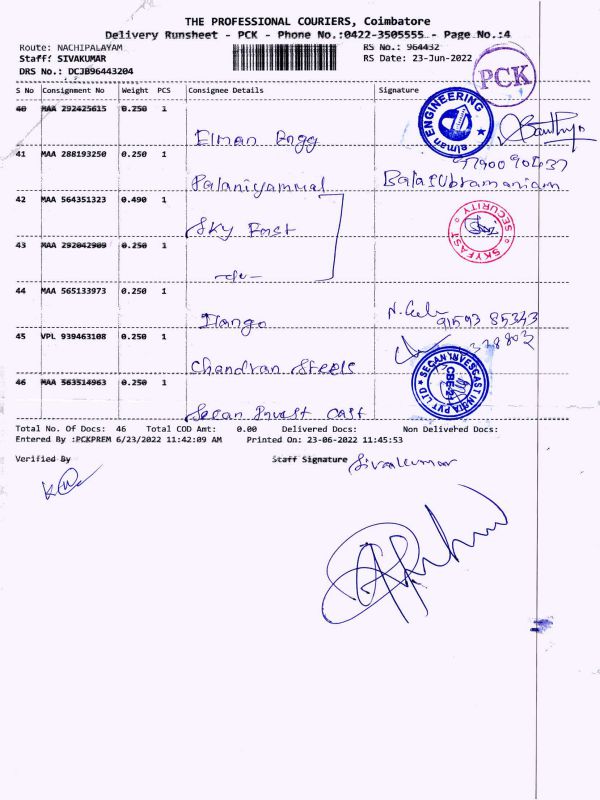 THE PROFESSIONAL COURIERS, Coimbatore
Delivery Runsheet - PCK - Phone No.:0422-3505555 - Page No.:4
Route: NACHIPALAYAM RS No.: 964432
Staff: SIVAKUMAR RS Date: 23-Jun-2022
DRS No.: DCJB96443204
PCK
S No Consignment No Weight PCS Consignee Details Signature
40 MAA 292425615 0.250 1
Elman Engg
elman ENGINEERING
41 MAA 288193250 0.250 1
Palaniyammal Balasubramaniam
42 MAA 564351323 0.490 1
Sky Fast
SKYFAST SECURITY
43 MAA 292042909 0.250 1
-do-
44 MAA 565133973 0.250 1
Ilango 91593 85343
45 VPL 939463108 0.250 1
Chandran Steels
46 MAA 563514963 0.250 1
Secan Invest Cast
SECAN INVESCAST INDIA PVT LTD
Total No. Of Docs: 46 Total COD Amt: 0.00 Delivered Docs: Non Delivered Docs:
Entered By :PCKPREM 6/23/2022 11:42:09 AM Printed On: 23-06-2022 11:45:53
Verified By Staff Signature Sivakumar